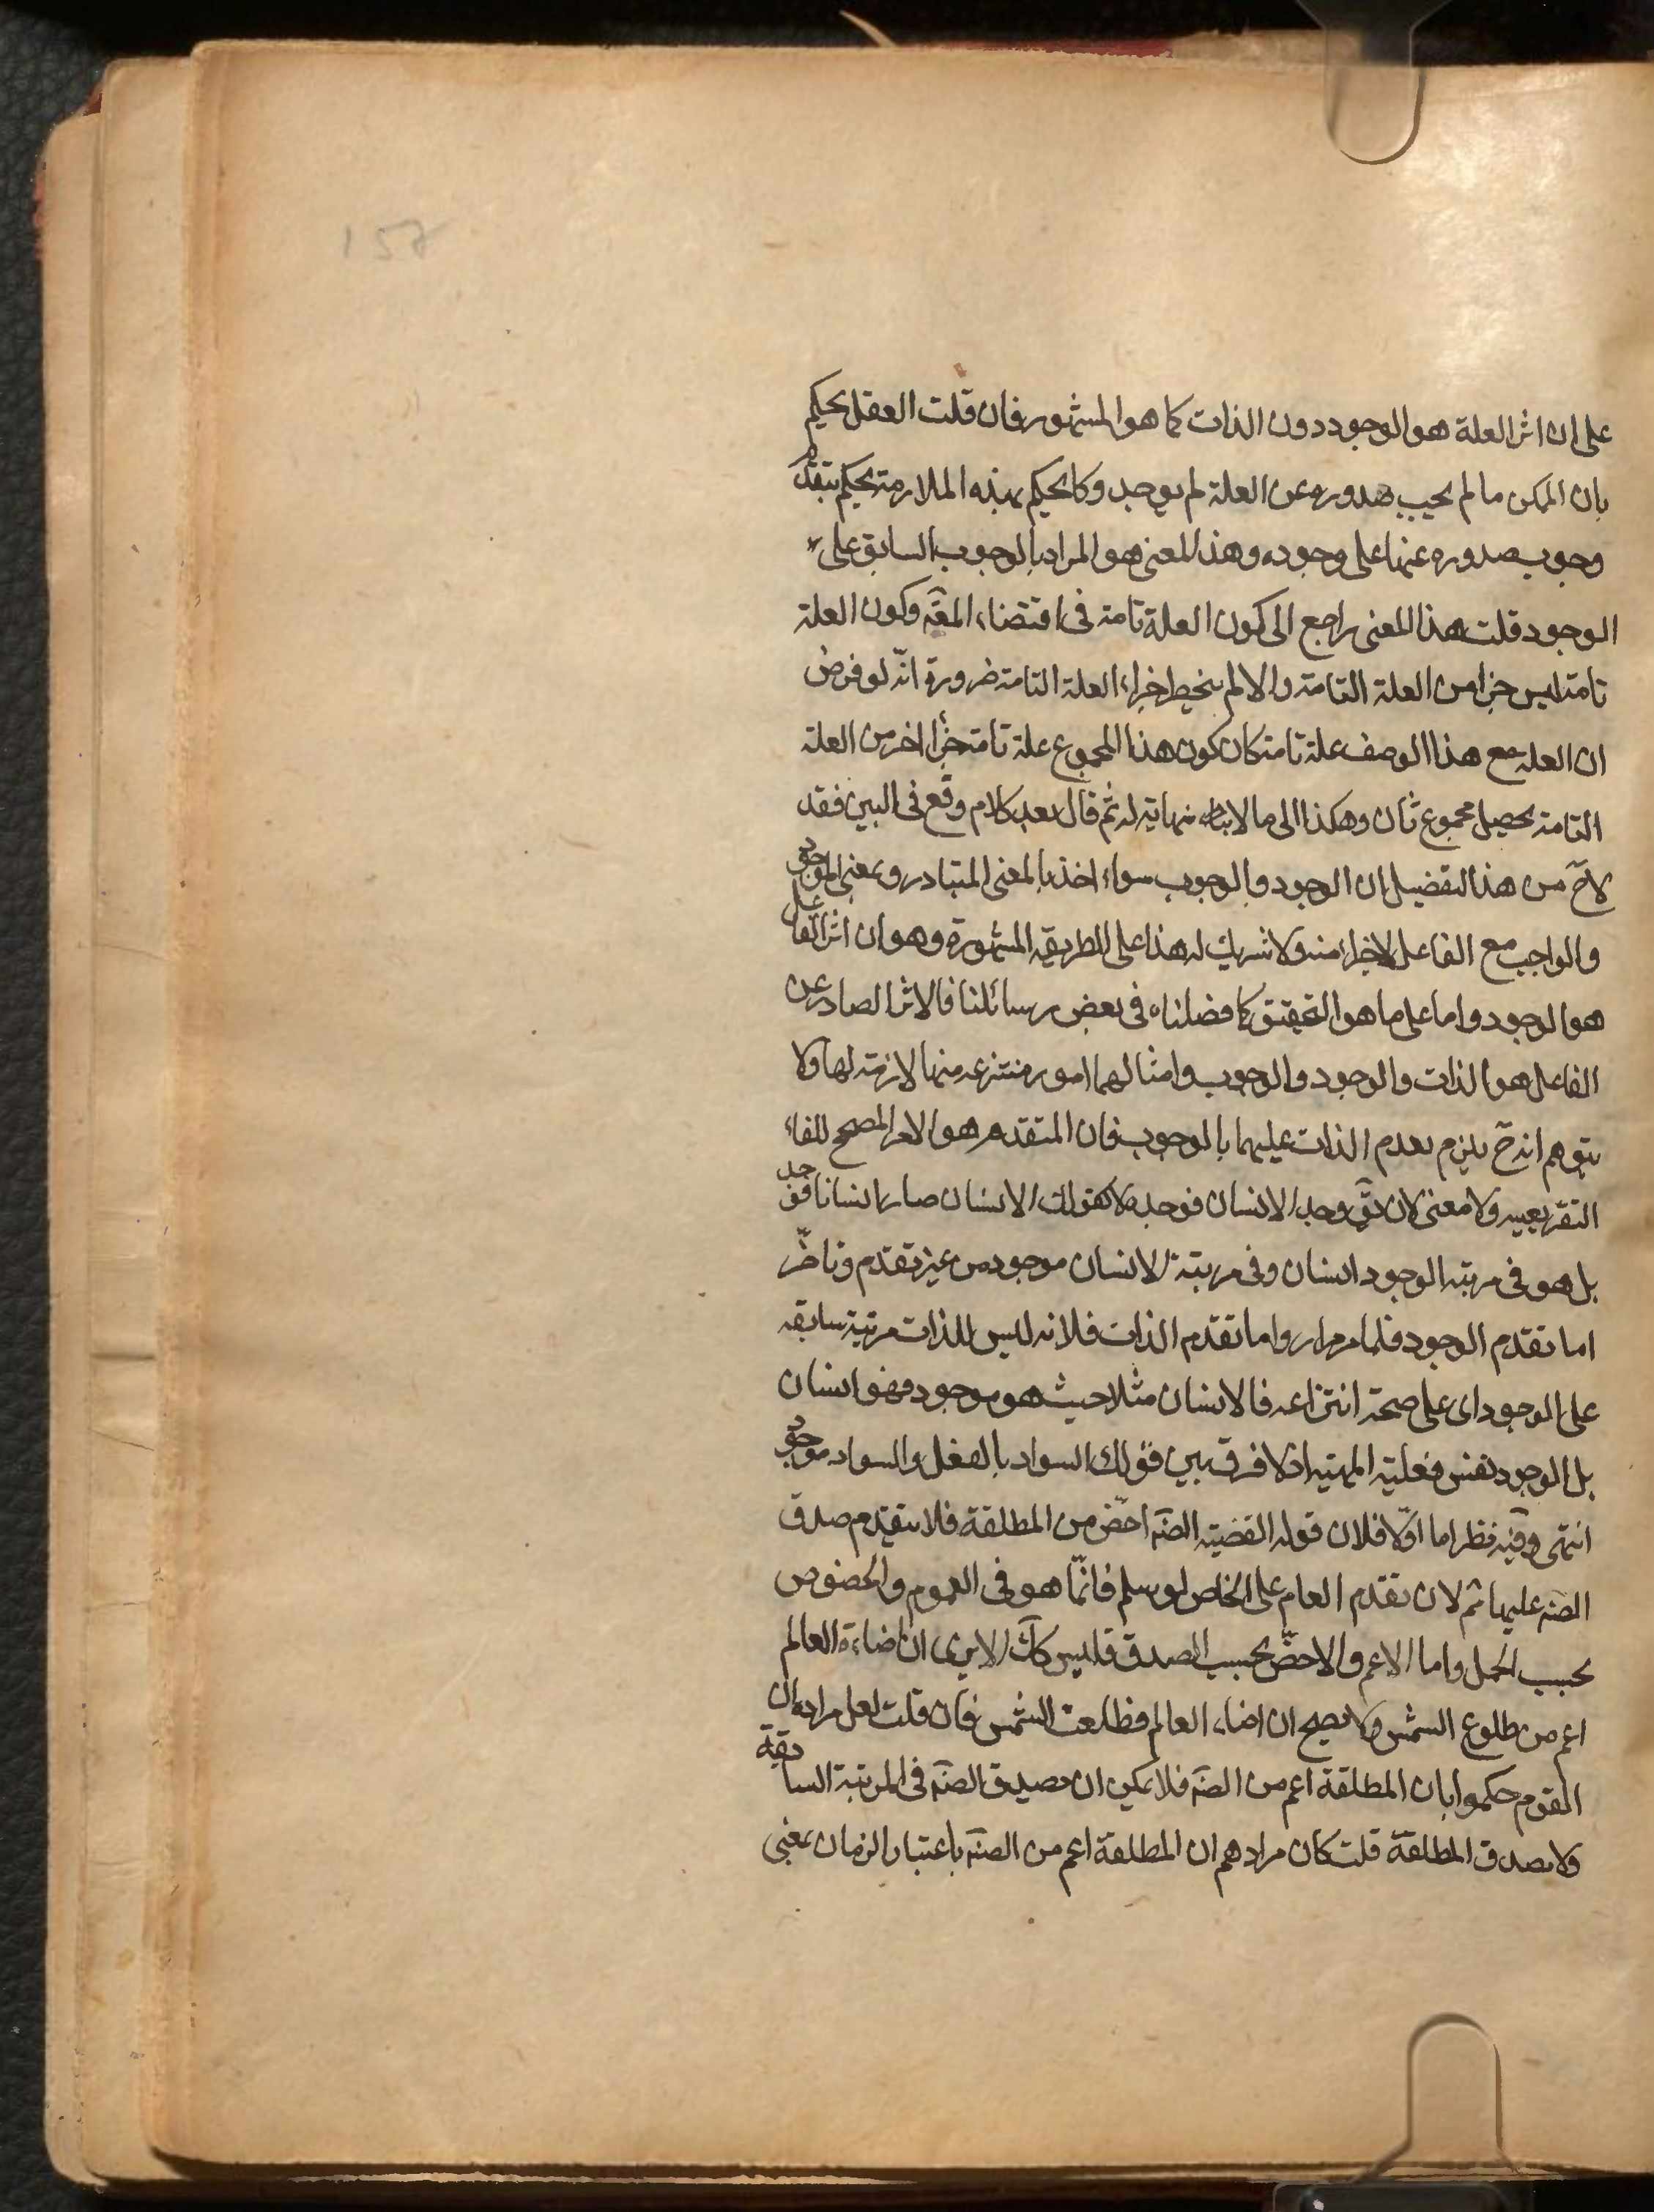 على ان اثر العلة هو الوجود دون الذات كما هو المشهور فان قلت العقل يحكم
بان الممكن ما لم يجب صدوره عن العلة لم يوجد وكما يحكم بهذه الملازمة يحكم بتقدم
وجوب صدوره عنها على وجوده وهذا المعنى هو المراد بالوجوب السابق على
الوجود قلت هذا المعنى راجع الى كون العلة تامة فى اقتضاء المعَه وكون العلة
تامة ليس جزا من العلة التامة والا لم ينحصر اجزاء العلة التامة ضرورة انّه لو فرض
ان العلة مع هذا الوصف علة تامة كان كون هذا المجموع علة تامة جزأ اخر من العلة
التامة يحصل مجموع ثان وهكذا الى ما لا نهاية له ثم قال بعد كلام وقع فى البين فقد
لاح من هذا التفضيل ان الوجود والوجوب سواء اخذ بالمعنى المتبادر و بمعنى الموجود
والواجب مع الفاعل لا جزء منه ولا شريك له هذا على الطريقه المشهورة وهو ان اثر الفاعل
هو الوجود واما على ما هو التحقيق كما فصلناه فى بعض رسائلنا فالاثر الصادر عن
الفاعل هو الذات والوجود والوجوب وامثالهما امور منتزعه منها لازمة لها ولا
يتوهم انه ح يلزم تقدم الذات عليهما بالوجوب فان المتقدم هو الامر المصحح للفاء
التفريعيه ولا معنى لان يقَ وجد الانسان فوجد ولا كقولك الانسان صار انسانا فوجد
بل هو فى مرتبة الوجود انسان وفى مرتبة الانسان موجود من غير تقدم وتاخّر
اما تقدم الوجود فلما مر مرارا واما تقدم الذات فلانه ليس للذات مرتبة سابقه
على الوجود اى على صحة انتزاعه فالانسان مثلا حيث هو موجود فهو انسان
بل الوجود نفس فعلية المهية اذ لا فرق بين قولك السواد بالفعل والسواد موجود
انتهى وفيه نظر اما اوّلا فلان قوله القضية الضَه اخصّ من المطلقة فلا يتقدم صدق
الضَه عليها ثم لان تقدم العام على الخاص لو سلم فانّما هو فى العموم والخصوص
بحسب الحمل واما الاعم والاخصّ بحسب الصدق فليس كَك الا يرى ان اضاءة العالم
اعم من طلوع الشمس ولا يصح ان اضاء العالم فطلعت الشمس فان قلت لعل مراده ان
القوم حكموا بان المطلقة اعم من الضَه فلا يمكن ان يصدق الضَه فى المرتبة السابقة
ولا يصدق المطلقة قلت كان مرادهم ان المطلقة اعم من الضَه باعتبار الزمان بمعنى